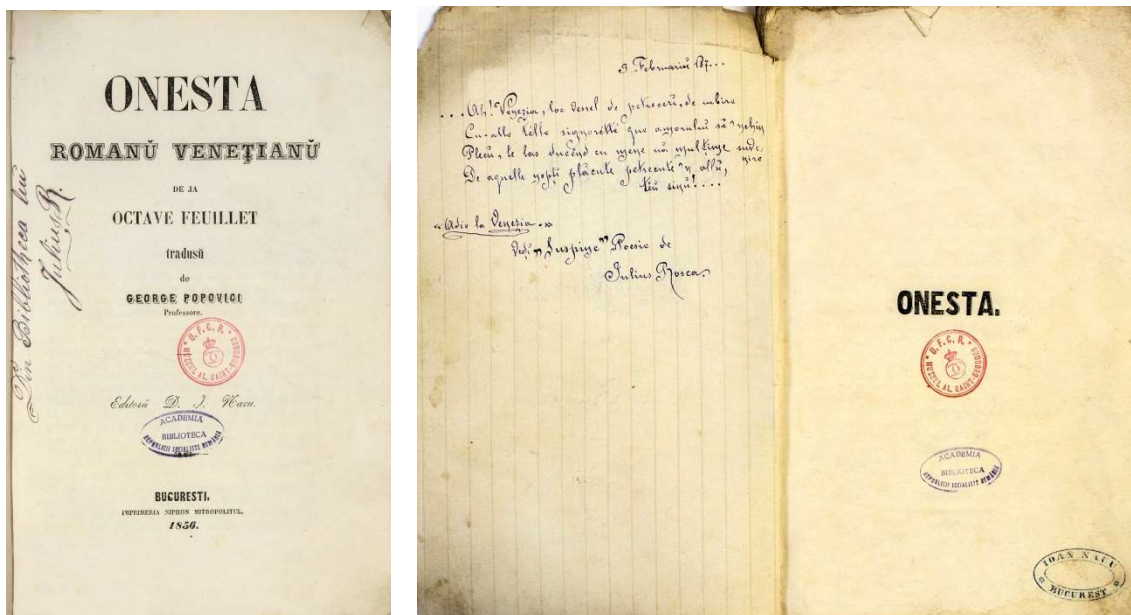 ONESTA
ROMANŬ VENEŢIANŬ
DE JA
OCTAVE FEUILLET
tradusŭ
de
GEORGE POPOVICI
Professore.
Din Bibliotheca lui
Julius R.
U. F. C. R.
MUZEUL AL. SAINT-GEORGES
Editorŭ D. J. Nacu.
ACADEMIA
BIBLIOTECA
REPUBLICII SOCIALISTE ROMÂNIA
BUCURESTI.
IMPRIMERIA NIPHON MITROPOLITUL.
1856.
3. Februariŭ 187...
...Ah! Venezia, loc de petreceri, de iubire
Cu alle telle signorette que amorului să
Plecu, te las ducênd cu mene uă mulţime
De aquelle nopţi plăcute petrecute 'n allŭ,
tĕu sinu!....
«Adio la Venezia.»
"Suspine" Poesie de
Julius Rosca.
ONESTA.
U. F. C. R.
MUZEUL AL. SAINT-GEORGES
ACADEMIA
BIBLIOTECA
REPUBLICII SOCIALISTE ROMÂNIA
IOAN NACU
BUCUREST